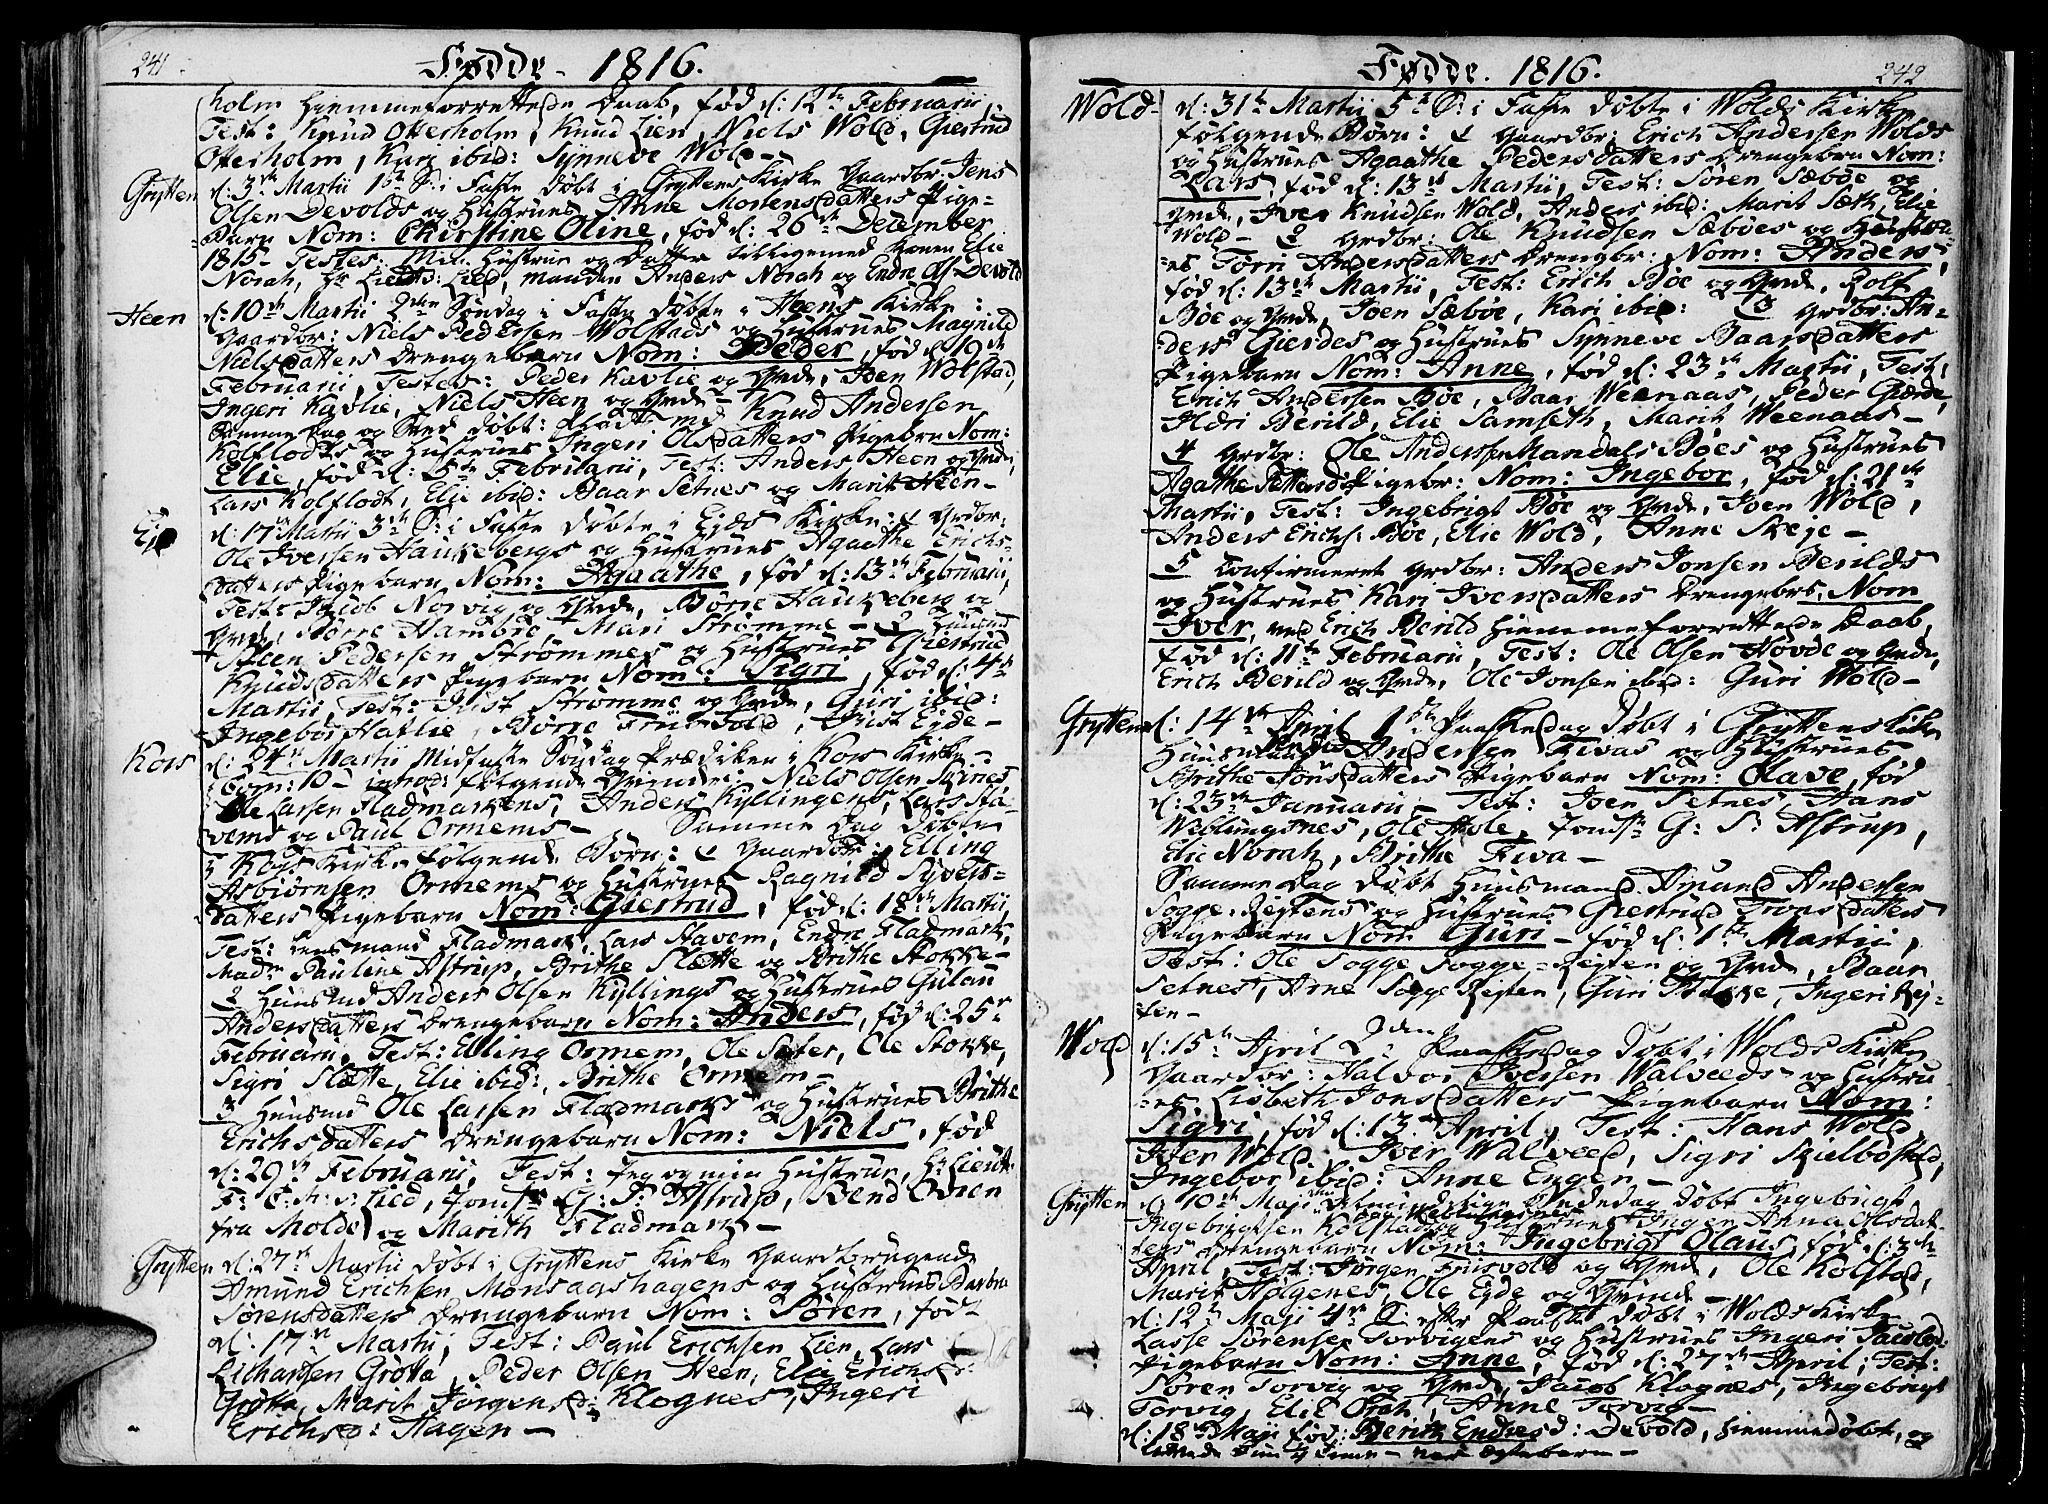 241.
Fødde 1816.
holm Hiemmeforrettede Daab, fød d: 12te Februarii,
Test: Knud Otterholm, Knud Lien, Niels Wold, Giertrud
Otterholm, Kari ibid: Synneve Wold –
Grytten d: 3die Martii 1ste S: i Faste døbt i Gryttens Kirke Gaardbr: Jens
Olsen Devolds og Hustrues Anne Mortensdatters Pige-
Barn Nom: Christine Oline, fød d: 26de December
1815 – Testes: Min Hustrue og Datter tilligemed Elie
Norah, Hr Lieut: Lied, Anders Norah og Endre Ols: Devold
Heen d: 10de Martii 2den Søndag i Faste døbte i Heens Kirke:
Gaardbr: Niels Pedersen Wolstads og Hustrues Magnild
Nielsdatters Drengebarn Nom: Peder, fød d: 19de
Februarii, Testes: Peder Kavlie og Qvinde, Joen Wolstad,
Ingeri Kavlie, Niels Heen og Qvinde –
Samme Dag og Sted døbt: Knud Andersen
Kolflodts og Hustrues Ingeri Olsdatters Pigebarn Nom:
Elie, fød d: 5te Februarii, Test: Anders Heen og Qvinde,
Lars Kolflodt, Elie ibid: Baar Setnes og Marit Heen –
d: 17de Martii 3die S: i Faste døbte i Eids Kirke: 1 Grdbr:
Ole Iversen Haukebergs og Hustrues Agaathe Erichs-
datters Pigebarn Nom: Agaathe, fød d: 13de Februarii,
Test: Jacob Norvig og Qvinde, Børre Haukeberg og
Qvinde, Børre Hambroe, Mari Strømme – 2 Huusmd
Steen Pedersen Strømmes og Hustrues Giertrud
Knudsdatters Pigebarn Nom: Sigri, fød d: 4de
Martii Test: Just Strømme og Qvinde, Guri ibid:
Ingebor Hatlie, Børre Friisvold, Just Eyde –
Kors d: 24de Martii Midfaste Søndag Prædiken i Kors Kirke –
Com: 10 – introd: følgende Qvinder: Niels Olsen
Ole Larsen Fladmarkens, Anders Kyllingens, Lars Sta-
vems og Paul Ormems – Samme Dag døbte
i Kors Kirke følgende Børn: 1 Gaardbr: Elling
Asbiørnsen Ormems og Hustrues Ragnild Syvers-
datters Pigebarn Nom: Giertrud, fød d: 18de Martii,
Test: Lensmand Fladmark, Lars Stavem, Endre Fladmark,
Madm Pauline Astrup, Brithe Slætte og Brithe Stokke –
2 Huusmd Anders Olsen Kyllings og Hustrues Gulau
Andersdatters Drengebarn Nom: Anders, fød d: 25de
Februarii, Test: Elling Ormem, Ole Sæter, Ole Stokke,
Sigri Slætte, Elie ibid:, Brithe Ormem –
3 Huusmd Ole Larsen Fladmarks og Hustrues Brithe
Erichsdatters Drengebarn Nom: Niels, fød
d: 29de Februarii, Test: Jeg og min Hustrue, Hr Lieut:
Lied, Jomfr G: S: Astrup, Bend Odden
fra Molde og Marith Fladmark –
Grytten d: 27de Martii døbt i Gryttens Kirke Gaardbrugende
Amund Erichsen Monsaashagens og Hustrues Barbra
Sørensdatters Drengebarn Nom: Søren, født
d: 17de Martii, Test: Paul Erichsen Lien, Lars
Grøtta, Peder Olsen Heen, Elie Erichsd:
Grøtta, Marit Jørgensd: Klognes, Ingeri
Erichsd: Hagen –
Fødde. 1816.
242
Wold d: 31te Martii 5te S: i Faste døbte i Wolds Kirke
følgende Børn: 1 Gaardbr: Erich Andersen Wolds
og Hustrues Agaathe Pedersdatters Drengebrn Nom:
Lars, fød d: 13de Martii, Test: Søren Sæbøe og
Qvinde, Iver Knudsen Wold, Anders ibid: Marit Sæth, Elie
Wold – 2 Grdbr: Ole Knudsen Sæbøes og Hustru-
es Torri Andersdatters Drengbr: Nom: Anders,
fød d: 13de Martii, Test: Erich Bøe og Qvinde, Rolf
Bøe og Qvinde, Joen Sæbøe, Kari ibid: 3 Grdbr: An-
ders Gierdes og Hustrues Synneve Baarsdatters
Pigebarn Nom: Anne, fød d: 23de Martii, Test:
Erich Andersen Bøe, Baar Weenaas, Peder Gierde,
Ildri Berild, Elie Samseth, Marit Weenaas –
4 Grdbr: Ole Andersen Mandals Bøes og Hustrues
Agathe Pettersd: Pigebr: Nom: Ingebor, fød d: 21de
Martii, Test: Ingebrigt Bøe og Qvinde, Joen Wold,
Anders Erichs: Bøe, Elie Wold, Anne Skeje –
5 Confirmeret Grdbr: Anders Jonsen Berilds
og Hustrues Kari Iversdatters Drengebrs. Nom
Iver, ved Erich Berild hiemmeforrettede Daab,
fød d: 11te Februarii, Test: Ole Olsen Hovde og Qvinde,
Erich Berild og Qvinde, Ole Jonsen ibid: Guri Wold –
Grytten d: 14de April 1ste Paaskedag døbt i Gryttens Kirke
Huusmand Andersen Fivas og Hustrues
Brithe Jonsdatters Pigebarn Nom: Olave, fød
d: 23de Januarii – Test: Joen Setnes, Hans
Weblungsnes, Ole Hole, Jomfr G: S: Astrup,
Elie Norah, Brithe Fiva –
Samme Dag døbt Huusmand Amund Andersen
Sogge-Rejtens og Hustrues Giertrud Tronsdatters
Pigebarn Nom Guri – fød d: 1ste Martii,
Test: Ole Sogge Sogge-Rejten og Qvinde, Baar
Setnes, Arne Sogge Rejten, Guri Ingeri Rej-
ten –
Wold d: 15de April 2den Paaskedag døbt i Wolds Kirke
Gaardbr: Halvor Iversen Walveeds og Hustru
es Lisbeth Jonsdatters Pigebarn Nom:
Sigri, fød d: 13de April, Test: Hans Wold,
Peter Wold, Iver Walveed, Sigri Skielbostad,
Ingebor ibid: Anne Engen –
Grytten d: 10de Maji Almindelige Bededag døbt Ingebrigt
Ingebrigtsen Kolstad og Hustrues Ingen Anna Olsdat-
ters Drengebarn Nom: Ingebrigt Olaus, fød d: 3die
April, Test: Jørgen Friisvold og Qvinde, Ole Kolstad,
Marit Holgenes, Ole Eyde og Qvinde –
d: 12te Maji 4de S: efter Paaske døbt i Wolds Kirke
Lasse Sørensen Torvigens og Hustrues Ingeri
Pigebarn Nom: Anne, fød d: 27de April; Test:
Søren Torvig og Qvinde, Jacob Klognes, Ingebrigt
Torvig, Elie Orah, Anne Torvig –
d: 18de Maji fød: Berith Endresd: Devold, hiemmedøbt, og